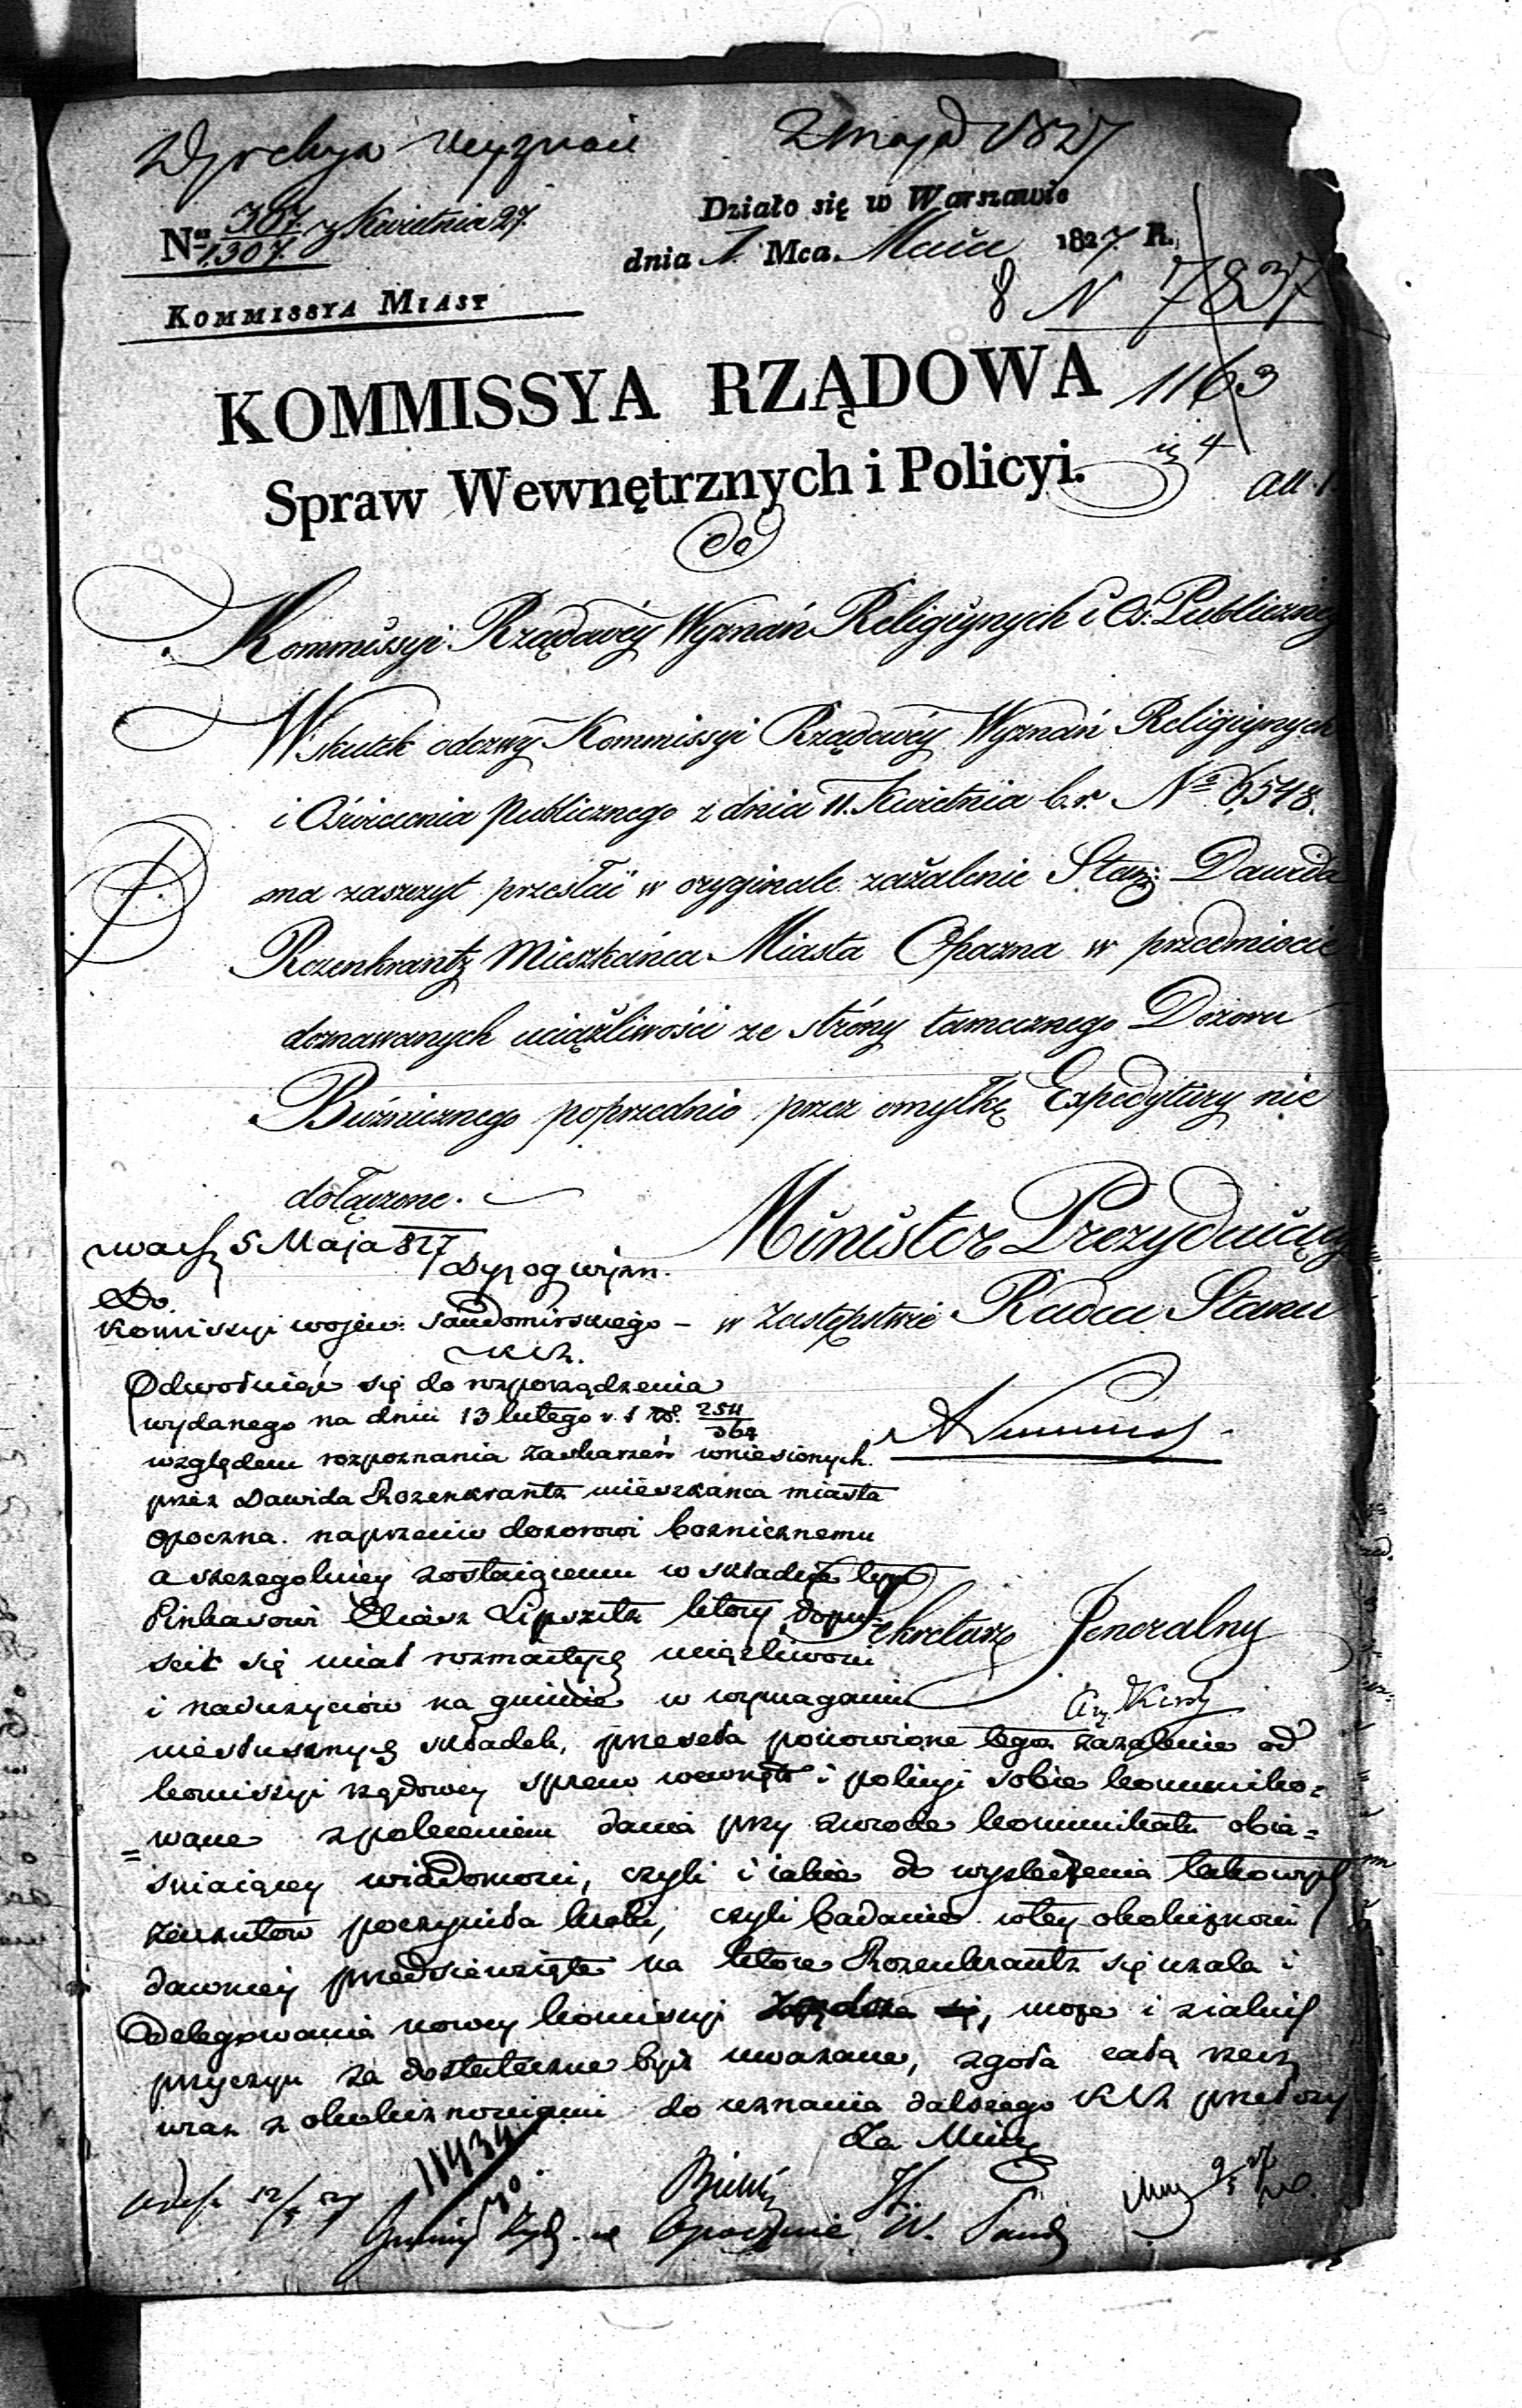 Dyrekcya Wyznań 2 maja 1827
Działo się w Warszawie
Nro 387/1307. z Kwietnia 27.
dnia 1. Mca. Maia 1827. R.
KOMMISSYA MIAST
8 N 7837
1163
KOMMISSYA RZĄDOWA
Spraw Wewnętrznych i Policyi.
all. 1.
Do
Kommissyi Rządowéy Wyznań Religiynych i Oś: Publiczneg
Wskutek odezwy Kommissyi Rządowéy Wyznań Religiynych
i Oświecenia Publicznego z dnia 11. Kwietnia b. r. No 6,548.
ma zaszczyt przesłać w oryginale zażalenie Staz: Dawida
Rozenkrantz Mieszkańca Miasta Opozna w przedmiocie
doznawanych uciążliwości ze stróny tamecznego Dozoru
Bużnicznego poprzednio przez omyłkę Expedytury nie
dołączone.
Minister Prezyduiący
w zastępstwie Radca Stanu
5 Maja 827
Do
Komissyi wojew: Sandomirskiego –
Odwołuiąc się do rozporządzenia
wydanego na dniu 13 lutego
względem rozpoznania zaskarzeń wniesionych
przez Dawida Rozenkrantz mieszkanca miasta
Opoczna. naprzeciw dozorowi boznicznemu
a szczegolniey zostaiącemu w składzie tym
Pinkasowi Eliasz Lipszitz ktory dopu-
scić się miał rozmaitych uciązliwosci
Sekretarz Jeneralny
i naduzyciow na gminie w wymaganiu
niesłusznych składek, przesyła ponowione tego zazalenie od
komissyi rządowey spraw wewnętr i policyi sobie kommuniko=
=wane z poleceniem dania przy zwrocie kommunikatu obia=
sniaiącey wiadomosci, czyli i iakie do wysledzenia takowych
zarzutow poczyniła kroki, czyli badanie wtey okolicznosci
dawniey przedsięwzięte na ktore Rozenkrantz się uzala i
delegowania nowey komissyi, moze i zialnich
przyczyn za dostateczne bydz uwazane, zgoła całą rzecz
wraz z okolicznosciami do uznania dalszego przełozy
Za Min
11434
Gminy Żyd. w Opocznie W. Sand